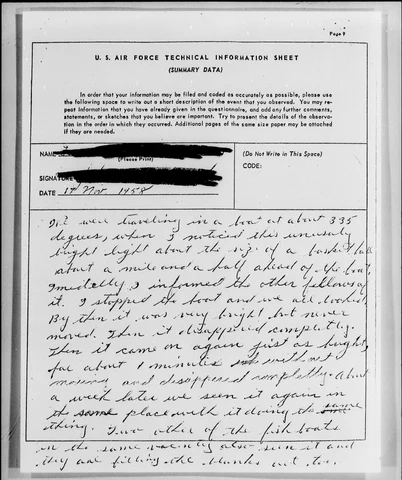 Page 9
U. S. AIR FORCE TECHNICAL INFORMATION SHEET
(SUMMARY DATA)
In order that your information may be filed and coded as accurately as possible, please use
the following space to write out a short description of the event that you observed. You may re-
peat information that you have already given in the questionnaire, and add any further comments,
statements, or sketches that you believe are important. Try to present the details of the observa-
tion in the order in which they occurred. Additional pages of the same size paper may be attached
if they are needed.
NAME
(Please Print)
SIGNATURE
DATE 17 Nov. 1958
(Do Not Write in This Space)
CODE:
We were traveling in a boat at about 335
degrees, when I noticed this unusualy
bright light about the size of a basket ball
about a mile and a half ahead of the boat,
Imedietly I informed the other fellows of
it. I stopped the boat and we all looked.
By then it was very bright but never
moved. Then it disappeared completly.
Then it came on again just as bright,
for about 1 minutes without
moveing and disappeared completly. About
a week later we seen it again in
the same place with it doing the same
thing. Two other of the fish boats
in the same vacenty also seen it and
they are filling the blanks out too.